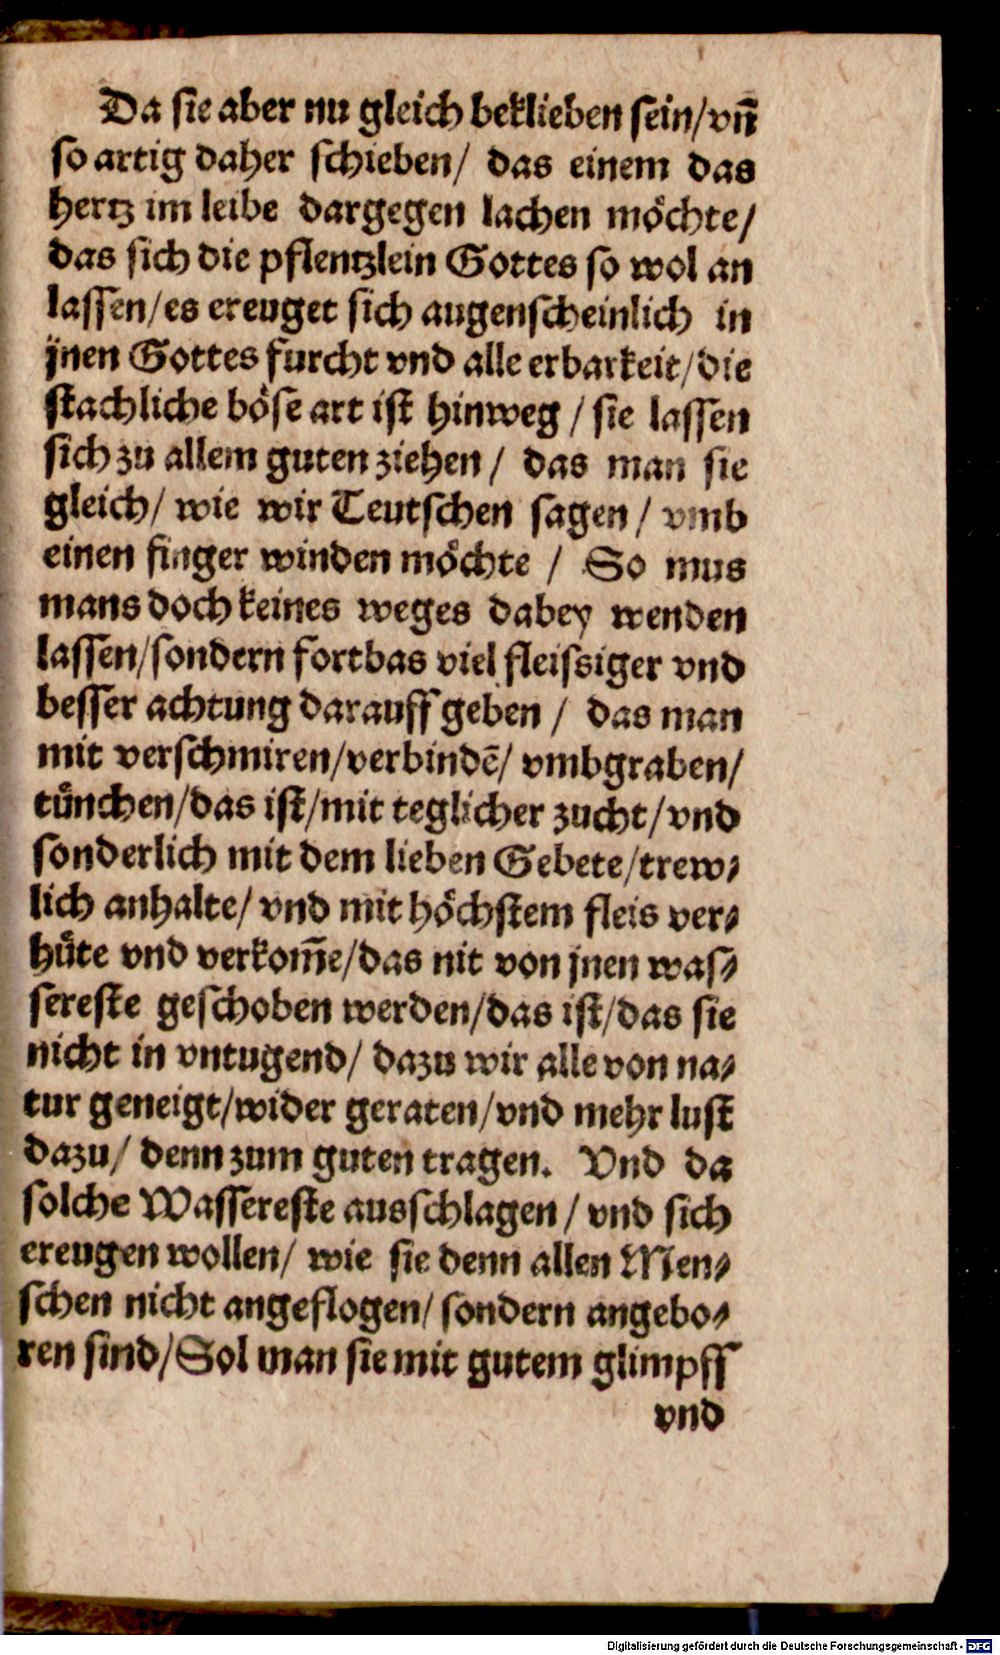 Da sie aber nu gleich beklieben sein/vñ
so artig daher schieben/ das einem das
hertz im leibe dargegen lachen möchte/
das sich die pflentzlein Gottes so wol an
lassen/es ereuget sich augenscheinlich in
jnen Gottes furcht vnd alle erbarkeit/die
stachliche böse art ist hinweg / sie lassen
sich zu allem guten ziehen / das man sie
gleich/ wie wir Teutschen sagen / vmb
einen finger winden möchte / So mus
mans doch keines weges dabey wenden
lassen/sondern fortbas viel fleissiger vnd
besser achtung darauff geben / das man
mit verschmiren/verbindē/ vmbgraben/
tünchen/das ist/mit teglicher zucht/vnd
sonderlich mit dem lieben Gebete/trew⸗
lich anhalte/ vnd mit höchstem fleis ver⸗
hüte vnd verkom̄e/das nit von jnen was⸗
sereste geschoben werden/das ist/das sie
nicht in vntugend/ dazu wir alle von na⸗
tur geneigt/wider geraten/vnd mehr lust
dazu/ denn zum guten tragen. Vnd da
solche Wassereste ausschlagen / vnd sich
ereugen wollen/ wie sie denn allen Men⸗
schen nicht angeflogen/ sondern angebo⸗
ren sind/Sol man sie mit gutem glimpff
vnd
Digitalisierung gefördert durch die Deutsche Forschungsgemeinschaft - DFG